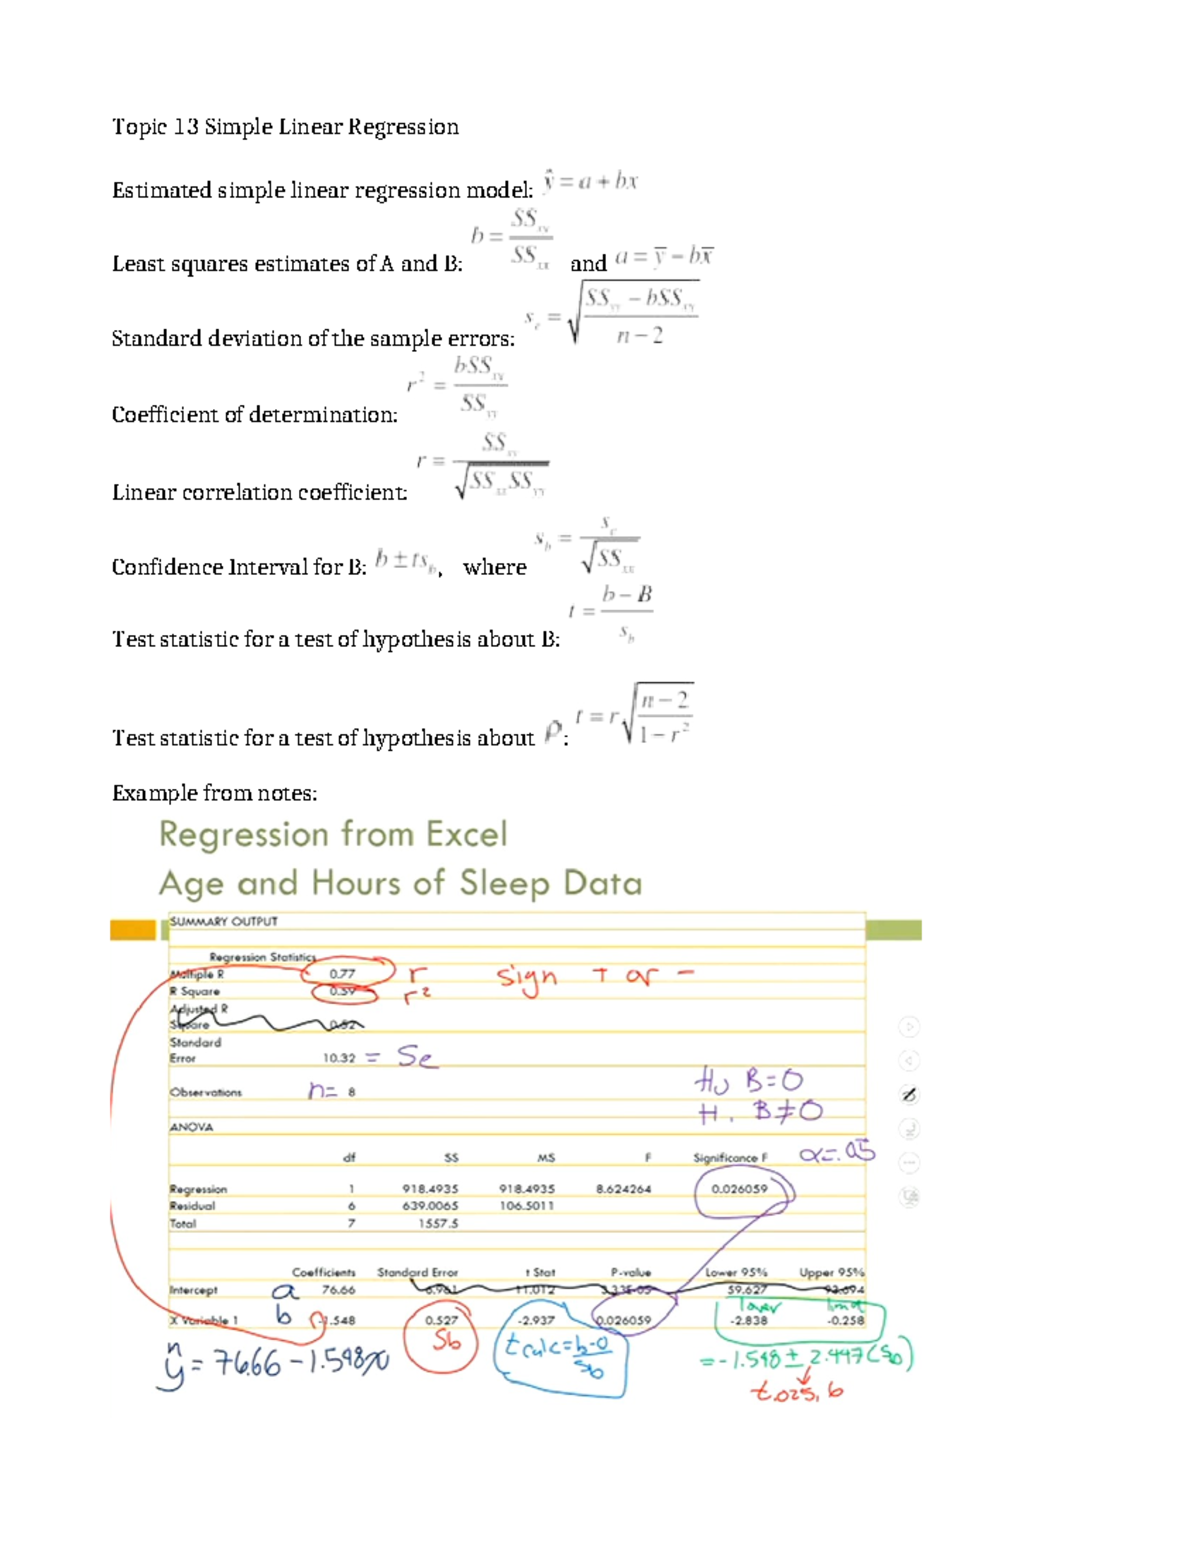 Topic 13 Simple Linear Regression
Estimated simple linear regression model: ŷ = a + bx
Least squares estimates of A and B: b = SSxy / SSxx and a = y̅ − bx̅
Standard deviation of the sample errors: se = √((SSyy − bSSxy) / (n − 2))
Coefficient of determination: r² = bSSxy / SSyy
Linear correlation coefficient: r = SSxy / √(SSxx SSyy)
Confidence Interval for B: b ± tsb, where sb = se / √SSxx
Test statistic for a test of hypothesis about B: t = (b − B) / sb
Test statistic for a test of hypothesis about ρ: t = r√((n − 2) / (1 − r²))
Example from notes:
Regression from Excel
Age and Hours of Sleep Data
SUMMARY OUTPUT
Regression Statistics
Multiple R 0.77 r sign + or −
R Square 0.59 r²
Adjusted R
Square 0.52
Standard
Error 10.32 = Se
Observations n= 8 H0 B=0
H1 B≠0
ANOVA α=.05
df SS MS F Significance F
Regression 1 918.4935 918.4935 8.624264 0.026059
Residual 6 639.0065 106.5011
Total 7 1557.5
Coefficients Standard Error t Stat P-value Lower 95% Upper 95%
Intercept a 76.66 6.961 11.012 3.33E-05 59.627 93.694
Lower limit
X Variable 1 b -1.548 0.527 -2.937 0.026059 -2.838 -0.258
Sb t calc = b-0 / sb
ŷ = 76.66 − 1.548x = -1.548 ± 2.447(sb)
t.025, 6